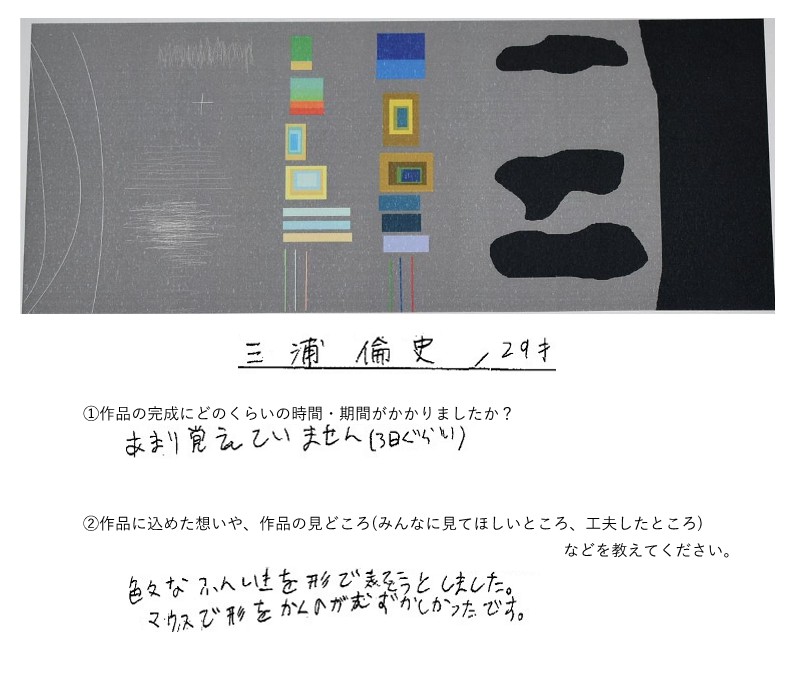 三浦倫史 / 29才
①作品の完成にどのくらいの時間・期間がかかりましたか？
あまり覚えていません(3日ぐらい)
②作品に込めた想いや、作品の見どころ(みんなに見てほしいところ、工夫したところ)
などを教えてください。
色々なふんいきを形で表そうとしました。
マウスで形をかくのがむずかしかったです。